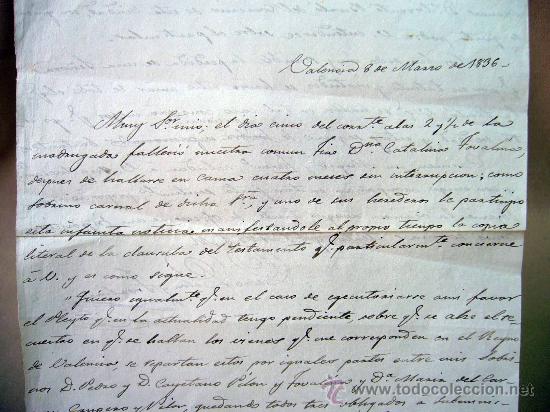 Valencia 8 de Marzo de 1836
Muy Sor. mio: el dia cinco del corrte. a las 2 y 1/2 de la
madrugada falleció nuestra comun Tia Dña Catalina Tovalina,
despues de hallarse en cama cuatro meses sin interrupcion; como
sobrino carnal de dicha Sra. y uno de sus herederos le participo
esta infausta noticia manifestandole al propio tiempo la copia
literal de la clausula del testamento q. particularmte. concierne
á U. y es como sigue.
"Quiero igualmte. q. en el caso de egecutoriarse a mi favor
el Pleyto q. en la actualidad tengo pendiente, sobre q. se alce el se-
cuestro en q. se hallan los vienes q. me corresponden en el Reyno
de Valencia, se repartan estos por iguales partes entre mis sobri-
nos D. Pedro y D. Cayetano Vélon y Tovalina y Da. Maria del Car-
men y Vélon, quedando todos tres obligados a
todocoleccion
todocoleccion.net